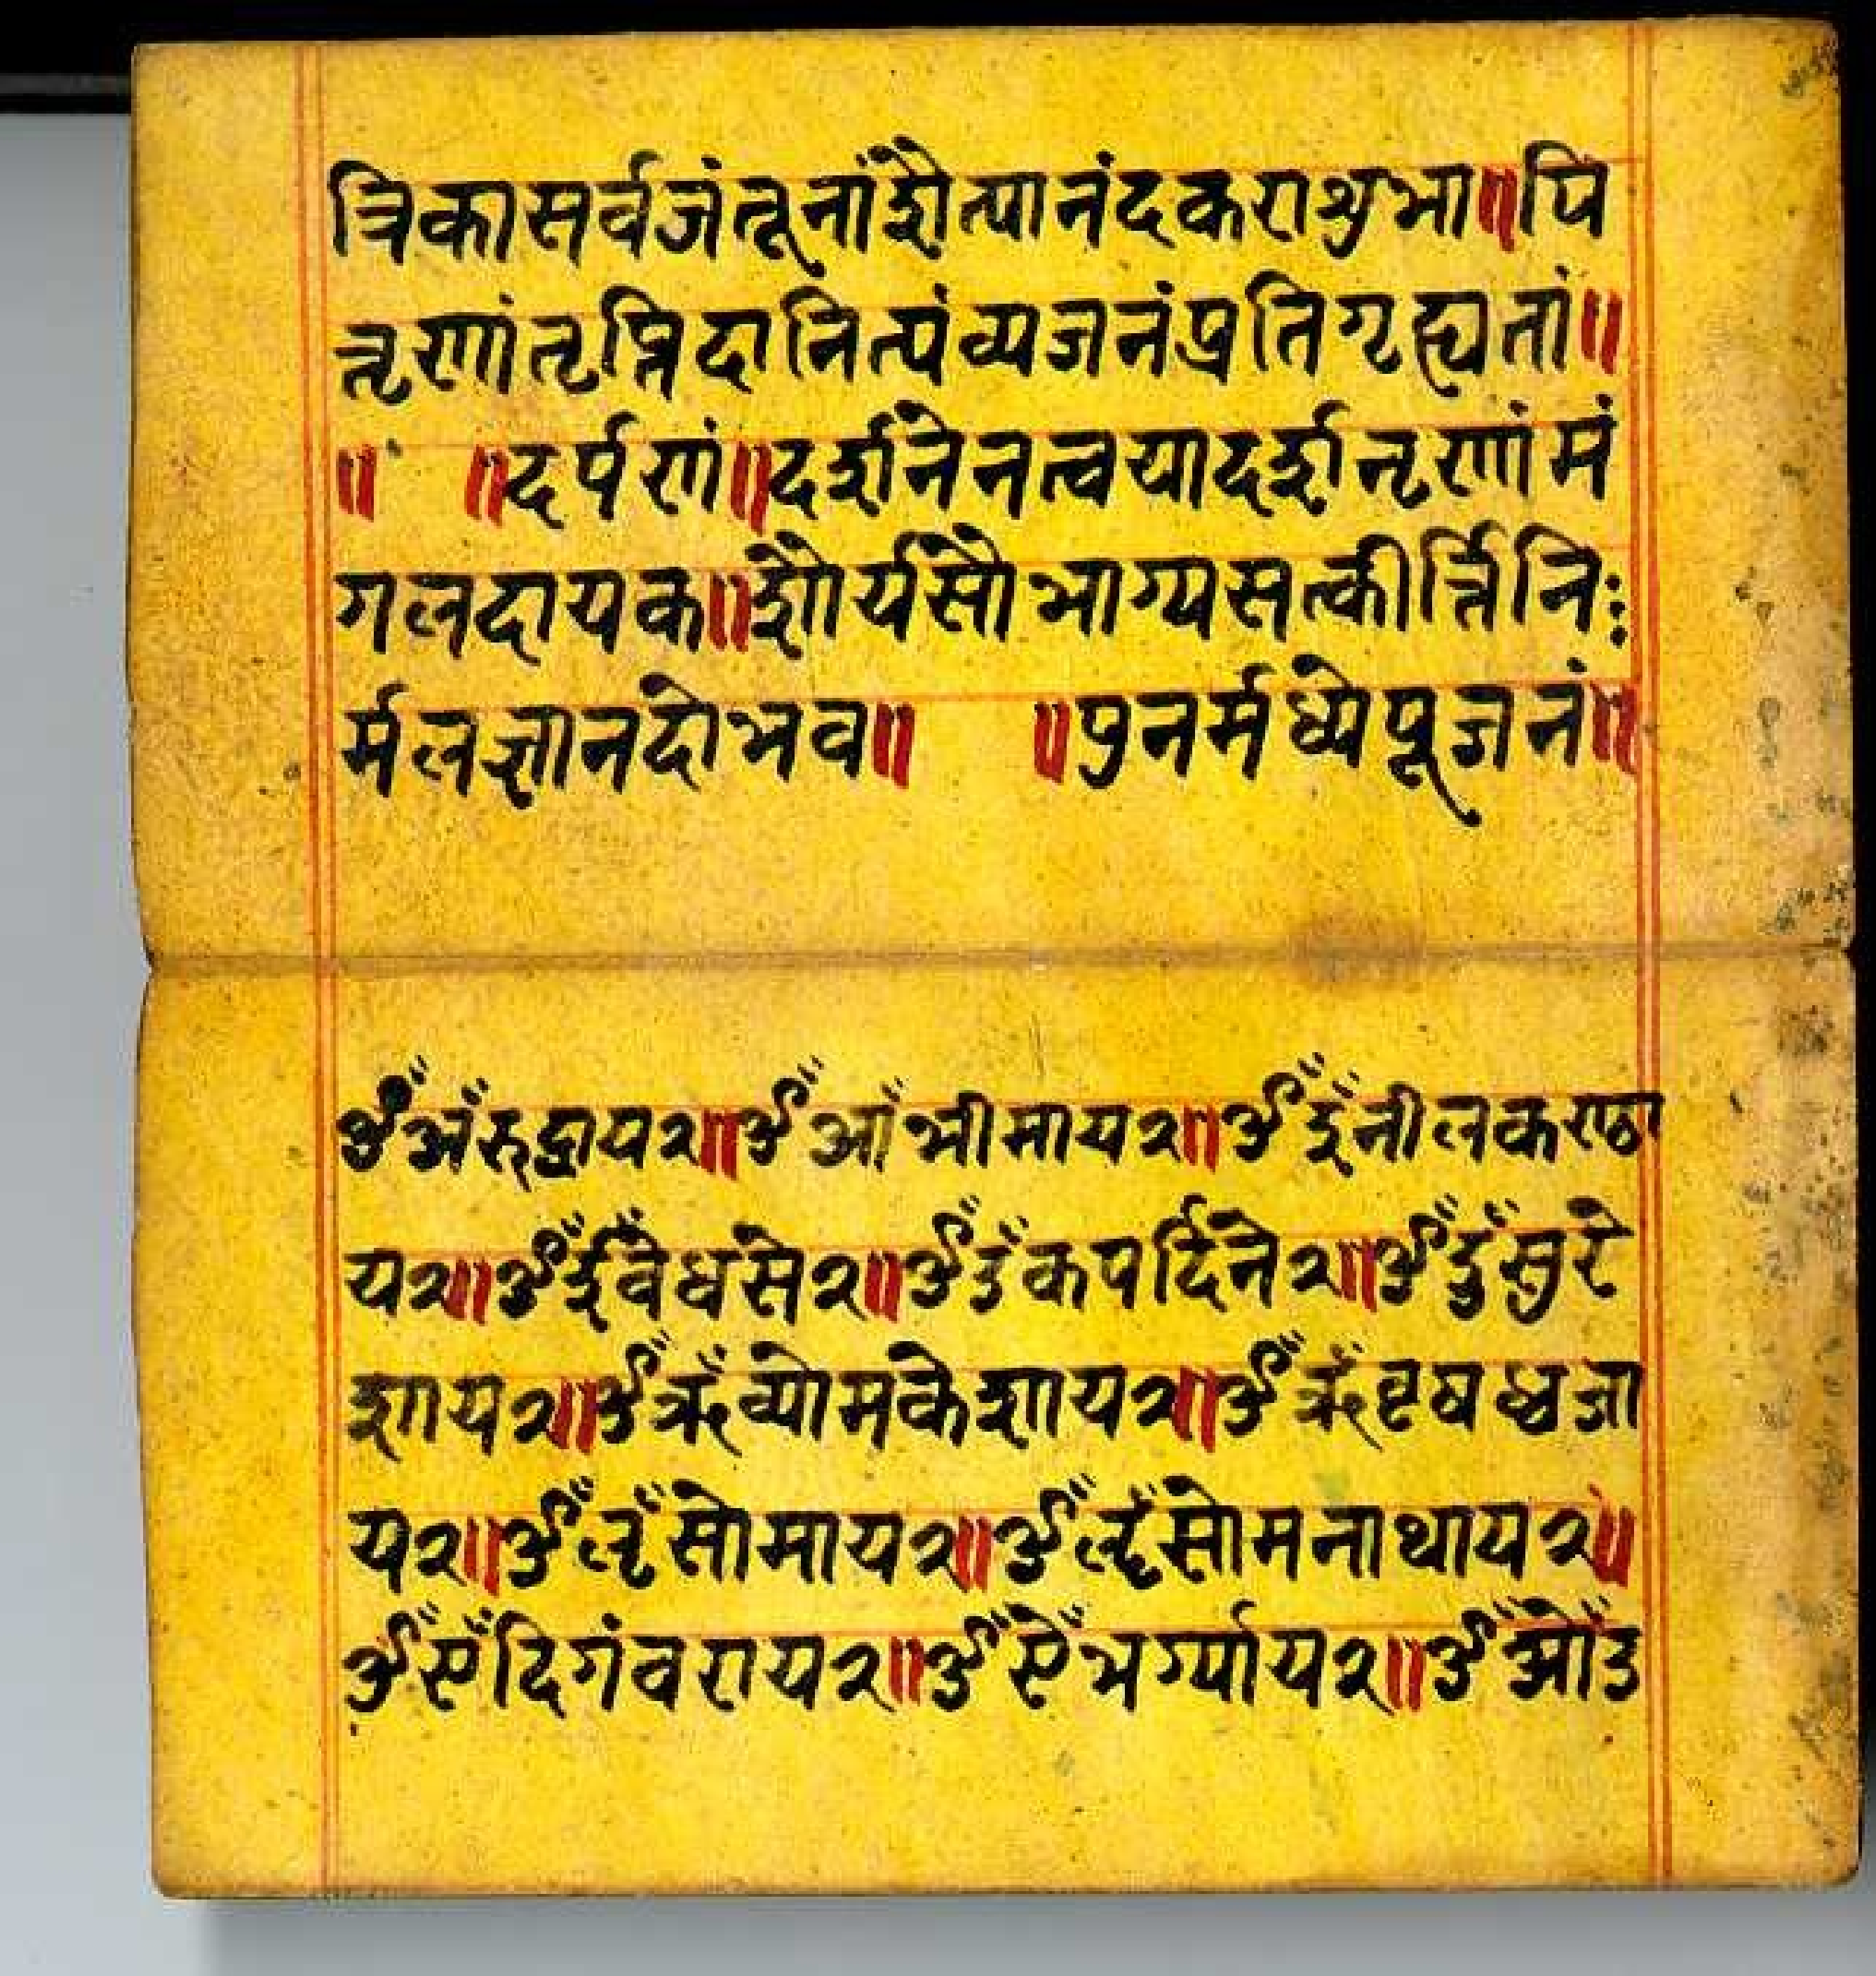 त्रिकासर्वजंतूनांशैत्यानंदकराशुभा॥पि
तृणांतृप्तिदानित्यंव्यजनंप्रतिगृह्यतां॥
॥ ॥दर्पणं॥दर्शनेनत्वयादर्शनृणांमं
गलदायक॥शौर्यसौभाग्यसत्कीर्त्तिनिः
र्मलज्ञानदोभव॥ ॥पुनर्मध्येपूजनं॥
ॐअँरुद्रायर॥ॐआँभीमायर॥ॐइँनीलकण्ठा
यर॥ॐईँवेधसेर॥ॐउँकपर्दिनेर॥ॐऊँसुरे
शायर॥ॐऋँव्योमकेशायर॥ॐॠँवृषध्वजा
यर॥ॐऌँसोमायर॥ॐॡँसोमनाथायर॥
ॐएँदिगंवरायर॥ॐऐँभर्ग्यायर॥ॐओँउ